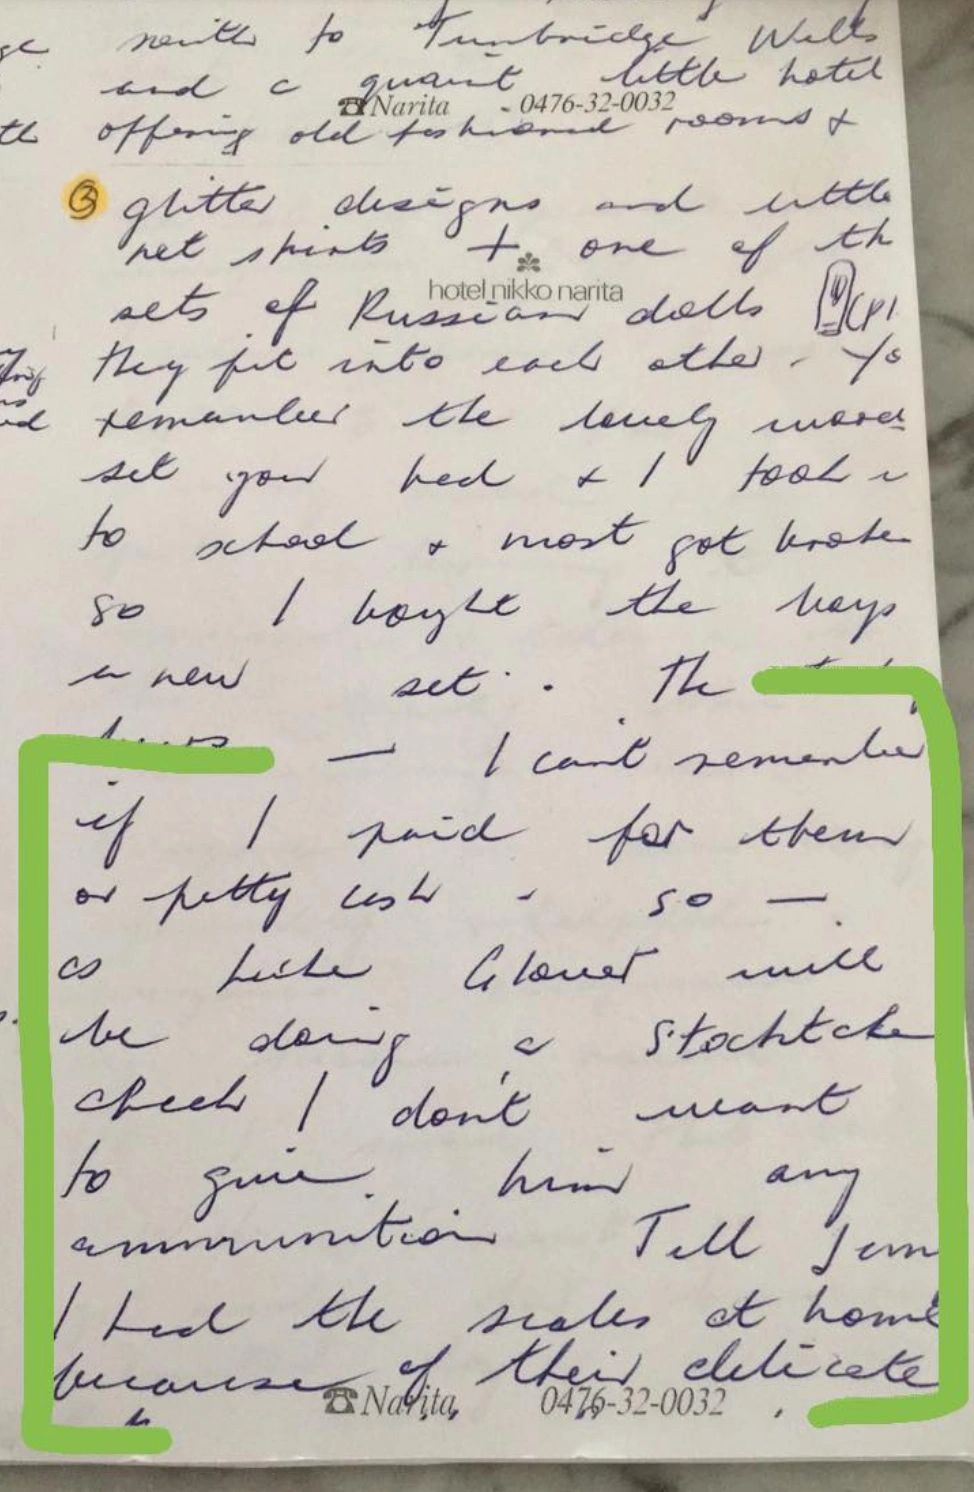 south to Tunbridge Wells
and a quaint little hotel
Narita - 0476-32-0032
offering old fashioned rooms &
3 glitter designs and little
net skirts + one of th
hotel nikko narita
sets of Russian dolls
they fit into each other. Yo
remember the lovely
set you had & I took
to school & most got broke
so I bought the boys
a new set. The
— I can't remember
if I paid for them
or petty cash - so —
as Luke Glover will
be doing a Stocktake
check I don't want
to give him any
ammunition Tell Jem
I had the scales at home
because of their delicate
Narita 0476-32-0032